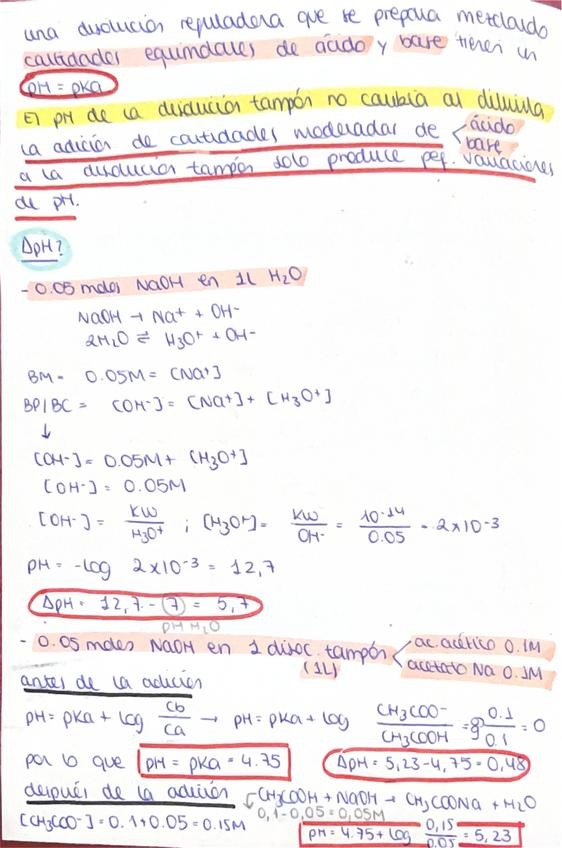 una disolución reguladora que se prepara mezclando
cantidades equimolares de ácido y base tienen un
pH = pKa
El pH de la disolución tampón no cambia al diluirla
la adición de cantidades moderadas de < ácido
base
a la disolución tampón solo produce peq. variaciones
de pH.
ΔpH?
- 0.05 moles NaOH en 1L H2O
NaOH → Na+ + OH-
2H2O ⇌ H3O+ + OH-
BM = 0.05M = [Na+]
BP/BC = [OH-] = [Na+] + [H3O+]
↓
[OH-] = 0.05M + [H3O+]
[OH-] = 0.05M
[OH-] = KW / H3O+ ; [H3O+] = KW / OH- = 10-14 / 0.05 = 2x10-3
pH = -log 2x10-3 = 12,7
ΔpH = 12,7 - 7 = 5,7
pH H2O
- 0.05 moles NaOH en 1 disoc. tampón < ac. acético 0.1M
(1L) acetato Na 0.1M
antes de la adición
pH = pKa + log Cb / Ca → pH = pKa + log CH3COO- / CH3COOH = 0.1 / 0.1 = 0
por lo que pH = pKa = 4.75 ΔpH = 5,23 - 4,75 = 0,48
después de la adición CH3COOH + NaOH → CH3COONa + H2O
0,1 - 0,05 = 0,05M
[CH3COO-] = 0.1 + 0.05 = 0.15M pH = 4.75 + log 0,15 / 0.05 = 5,23